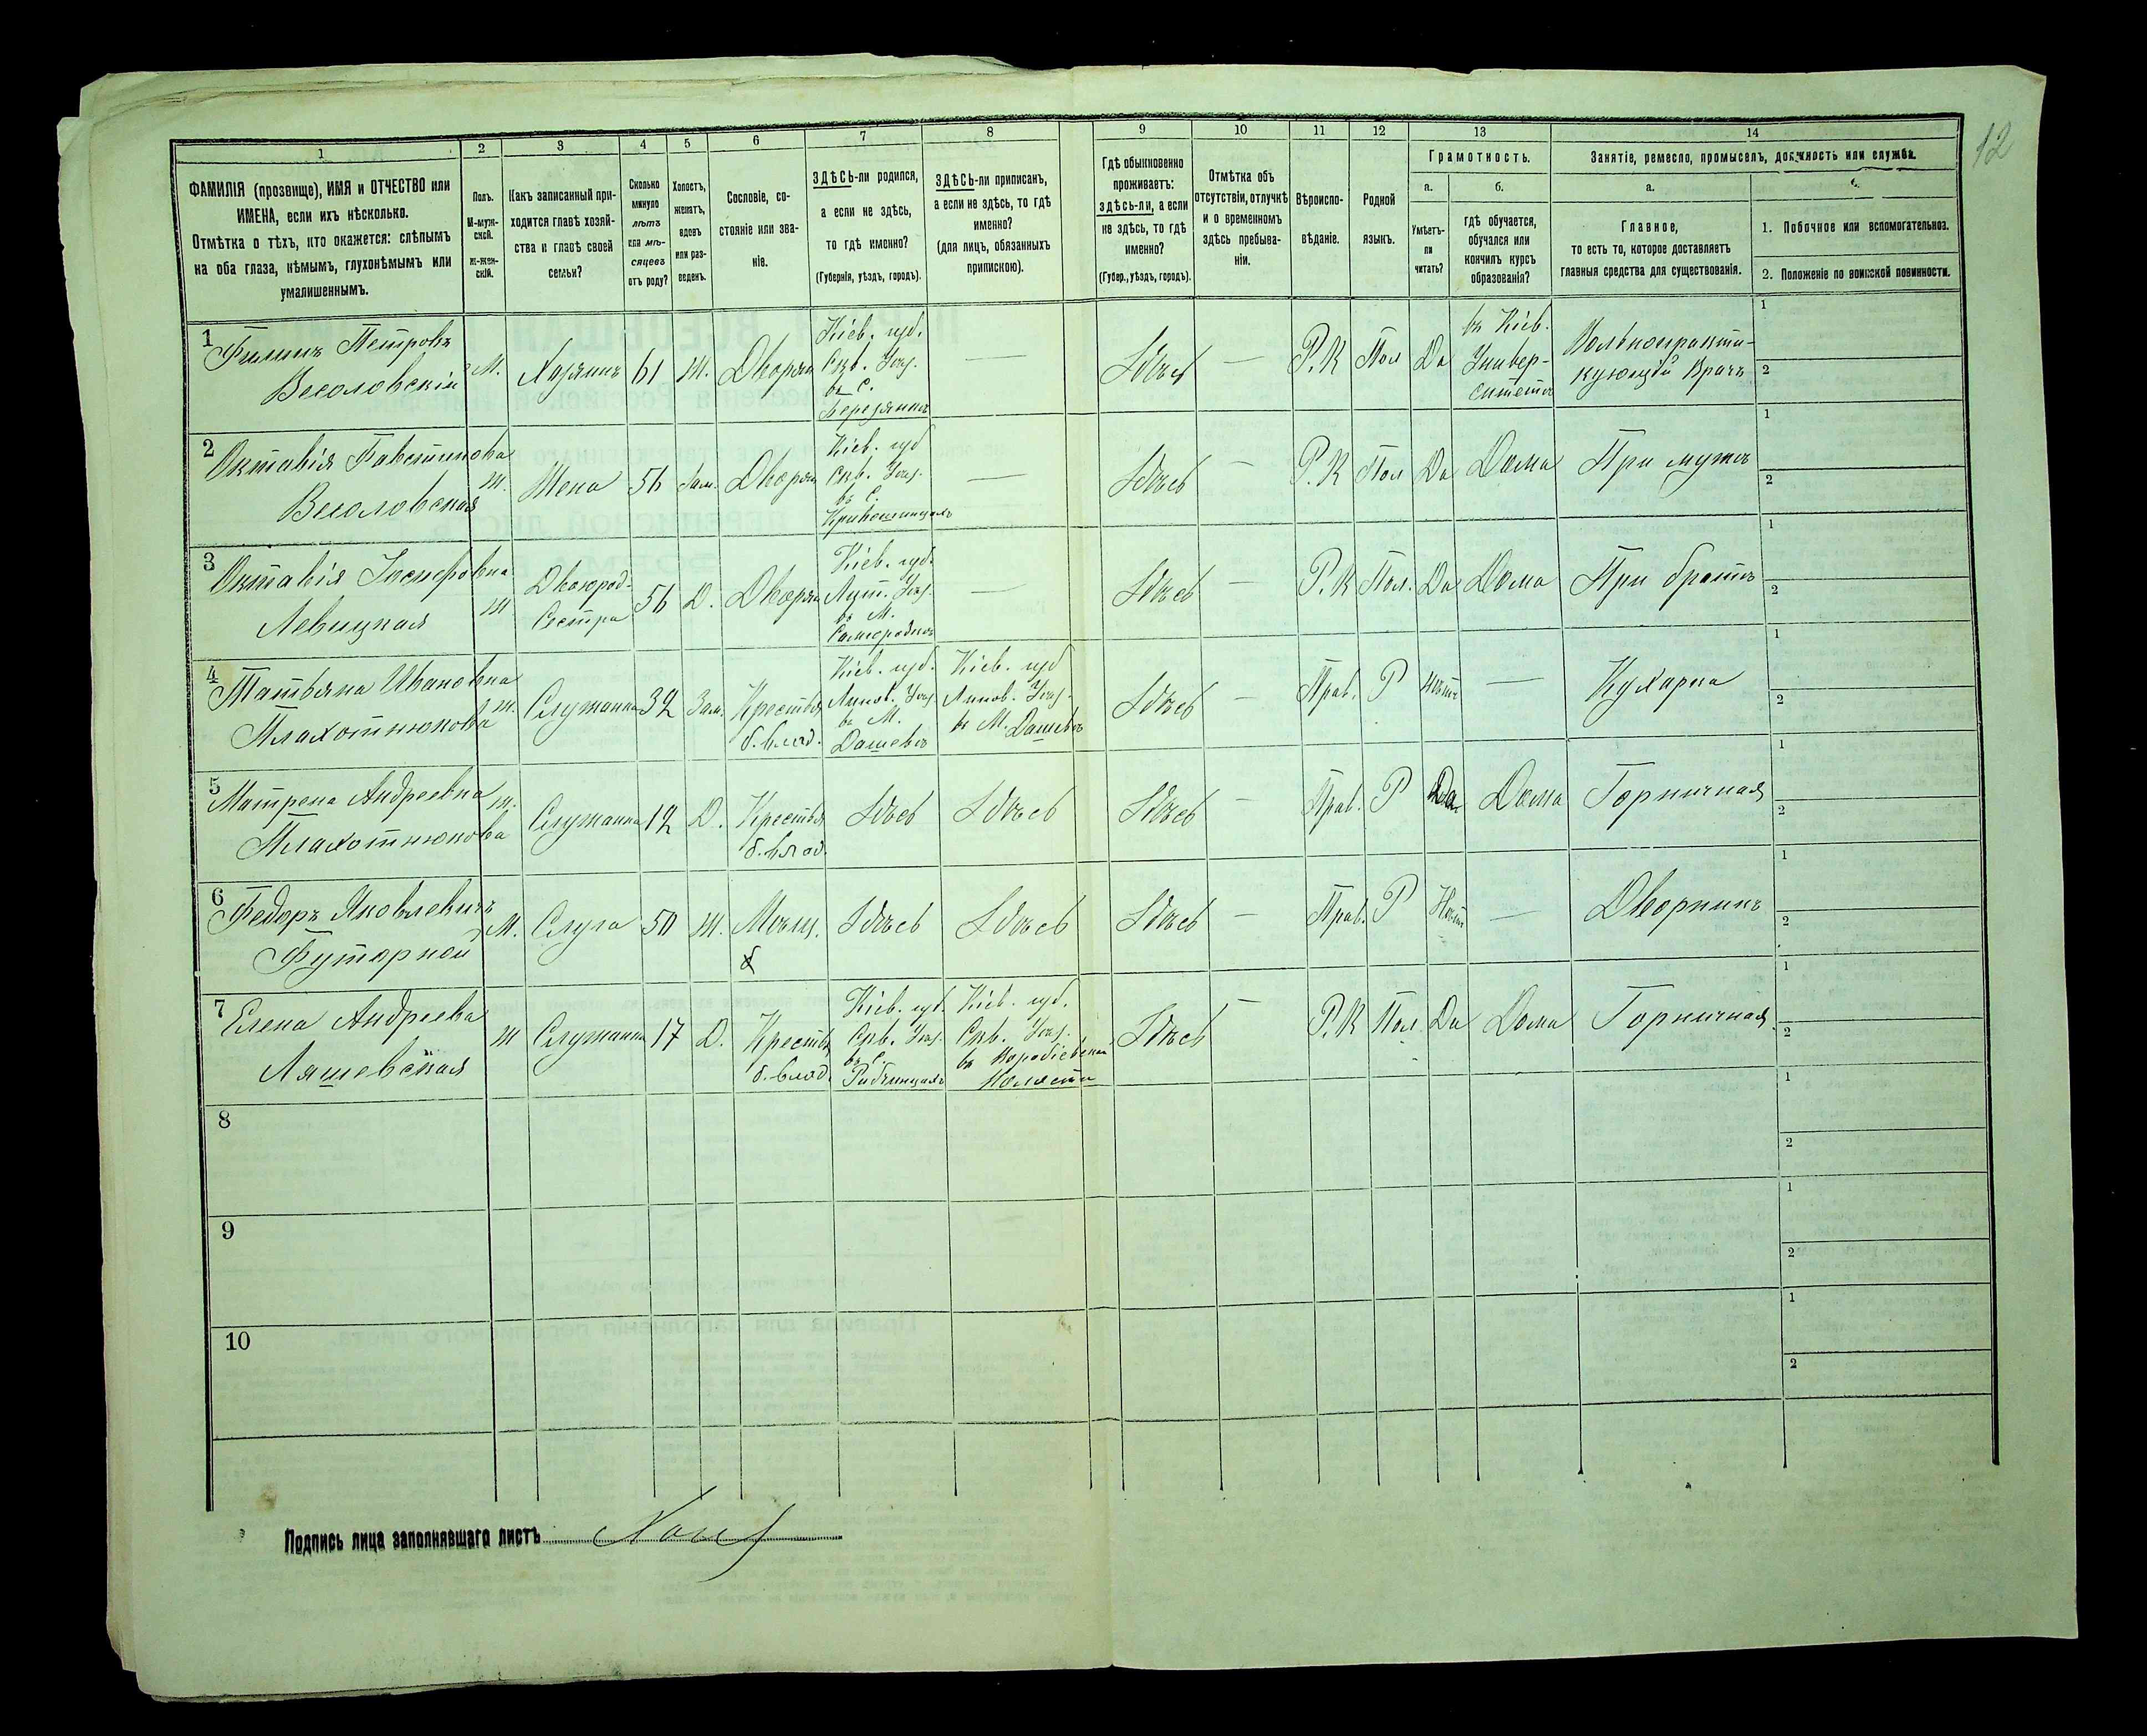 12
1
2
3
4
5
6
7
8
9
10
11
12
13
14
ФАМИЛІЯ (прозвище), ИМЯ и ОТЧЕСТВО или
ИМЕНА, если ихъ нѣсколько.
Отмѣтка о тѣхъ, кто окажется: слѣпымъ
на оба глаза, нѣмымъ, глухонѣмымъ или
умалишеннымъ.
Полъ.
М-муж-
ской.
ж-жен-
скій.
Какъ записанный при-
ходится главѣ хозяй-
ства и главѣ своей
семьи?
Сколько
минуло
лѣтъ
или мѣ-
сяцевъ
отъ роду?
Холостъ,
женатъ,
вдовъ
или раз-
веденъ.
Сословіе, со-
стояніе или зва-
ніе.
ЗДѢСЬ-ли родился,
а если не здѣсь,
то гдѣ именно?
(Губернія, уѣздъ, городъ).
ЗДѢСЬ-ли приписанъ,
а если не здѣсь, то гдѣ
именно?
(для лицъ, обязанныхъ
припискою).
Гдѣ обыкновенно
проживаетъ:
здѣсь-ли, а если
не здѣсь, то гдѣ
именно?
(Губер., уѣздъ, городъ).
Отмѣтка объ
отсутствіи, отлучкѣ
и о временномъ
здѣсь пребыва-
ніи.
Вѣроиспо-
вѣданіе.
Родной
языкъ.
Грамотность.
а.
Умѣетъ-
ли
читать?
б.
гдѣ обучается,
обучался или
кончилъ курсъ
образованія?
Занятіе, ремесло, промыселъ, должность или служба.
а.
Главное,
то есть то, которое доставляетъ
главныя средства для существованія.
1. Побочное или вспомогательное.
2. Положеніе по воинской повинности.
1
Филипъ Петровъ
Веселовскій
М.
Хозяинъ
61
Ж.
Дворян
Кіев. губ.
Скв. Уѣз.
въ с.
—
Здѣсь
—
Р. К
Пол
Да
въ Кіев.
Универ-
ситетѣ
Вольнопракти-
кующій Врачъ
1
2
2
Октавія Фавстинова
Веселовская
Ж.
Жена
56
Зам.
Дворян
Кіев. губ
Скв. Уѣз.
въ С.
—
Здѣсь
—
Р. К
Пол
Да
Дома
При мужѣ
1
2
3
Октавія
Левицкая
Ж
Двоюрод.
Сестра
56
Д.
Дворян
Кіев. губ.
Лип. Уѣз.
въ М.
—
Здѣсь
—
Р. К
Пол.
Да
Дома
При братѣ
1
2
4
Татьяна Ивановна
Плахотнюкова
Ж.
Служанка
32
Зам.
Крестья
б. влад.
Кіев. губ.
Липов. Уѣз
въ М.
Дашевѣ
Кіев. губ
Липов. Уѣз.
въ М. Дашевѣ
Здѣсь
—
Прав.
Р
Нѣтъ
—
Кухарка
1
2
5
Матрена Андреевна
Плахотнюкова
Ж.
Служанка
12
Д.
Крестья
б. влад.
Здѣсь
Здѣсь
Здѣсь
—
Прав.
Р
Да
Дома
Горничная
1
2
6
Федоръ Яковлевичъ
Футорной
М.
Слуга
50
Ж.
Мѣщ.
Здѣсь
Здѣсь
Здѣсь
—
Прав.
Р
Нѣтъ
—
Дворникъ
1
2
7
Елена Андреева
Ляшевская
Ж
Служанка
17
Д.
Крестья
б. влад.
Кіев. губ.
Скв. Уѣз.
въ С.
Кіев. губ.
Скв. Уѣз.
Волости
Здѣсь
—
Р. К
Пол.
Да
Дома
Горничная
1
2
8
1
2
9
1
2
10
1
2
Подпись лица заполнявшаго листъ